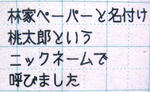 林家ペーパーと名付け
桃太郎という
ニックネームで
呼びました